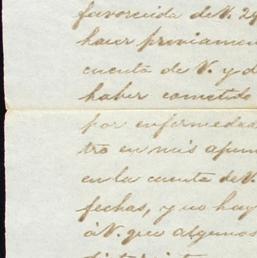 favorecida de V. 29
hacer previamen
cuenta de V. y d
haber cometido
por enfermeda
tro en mis apun
en la cuenta de V.
fechas, y no hay
á V. que algunos